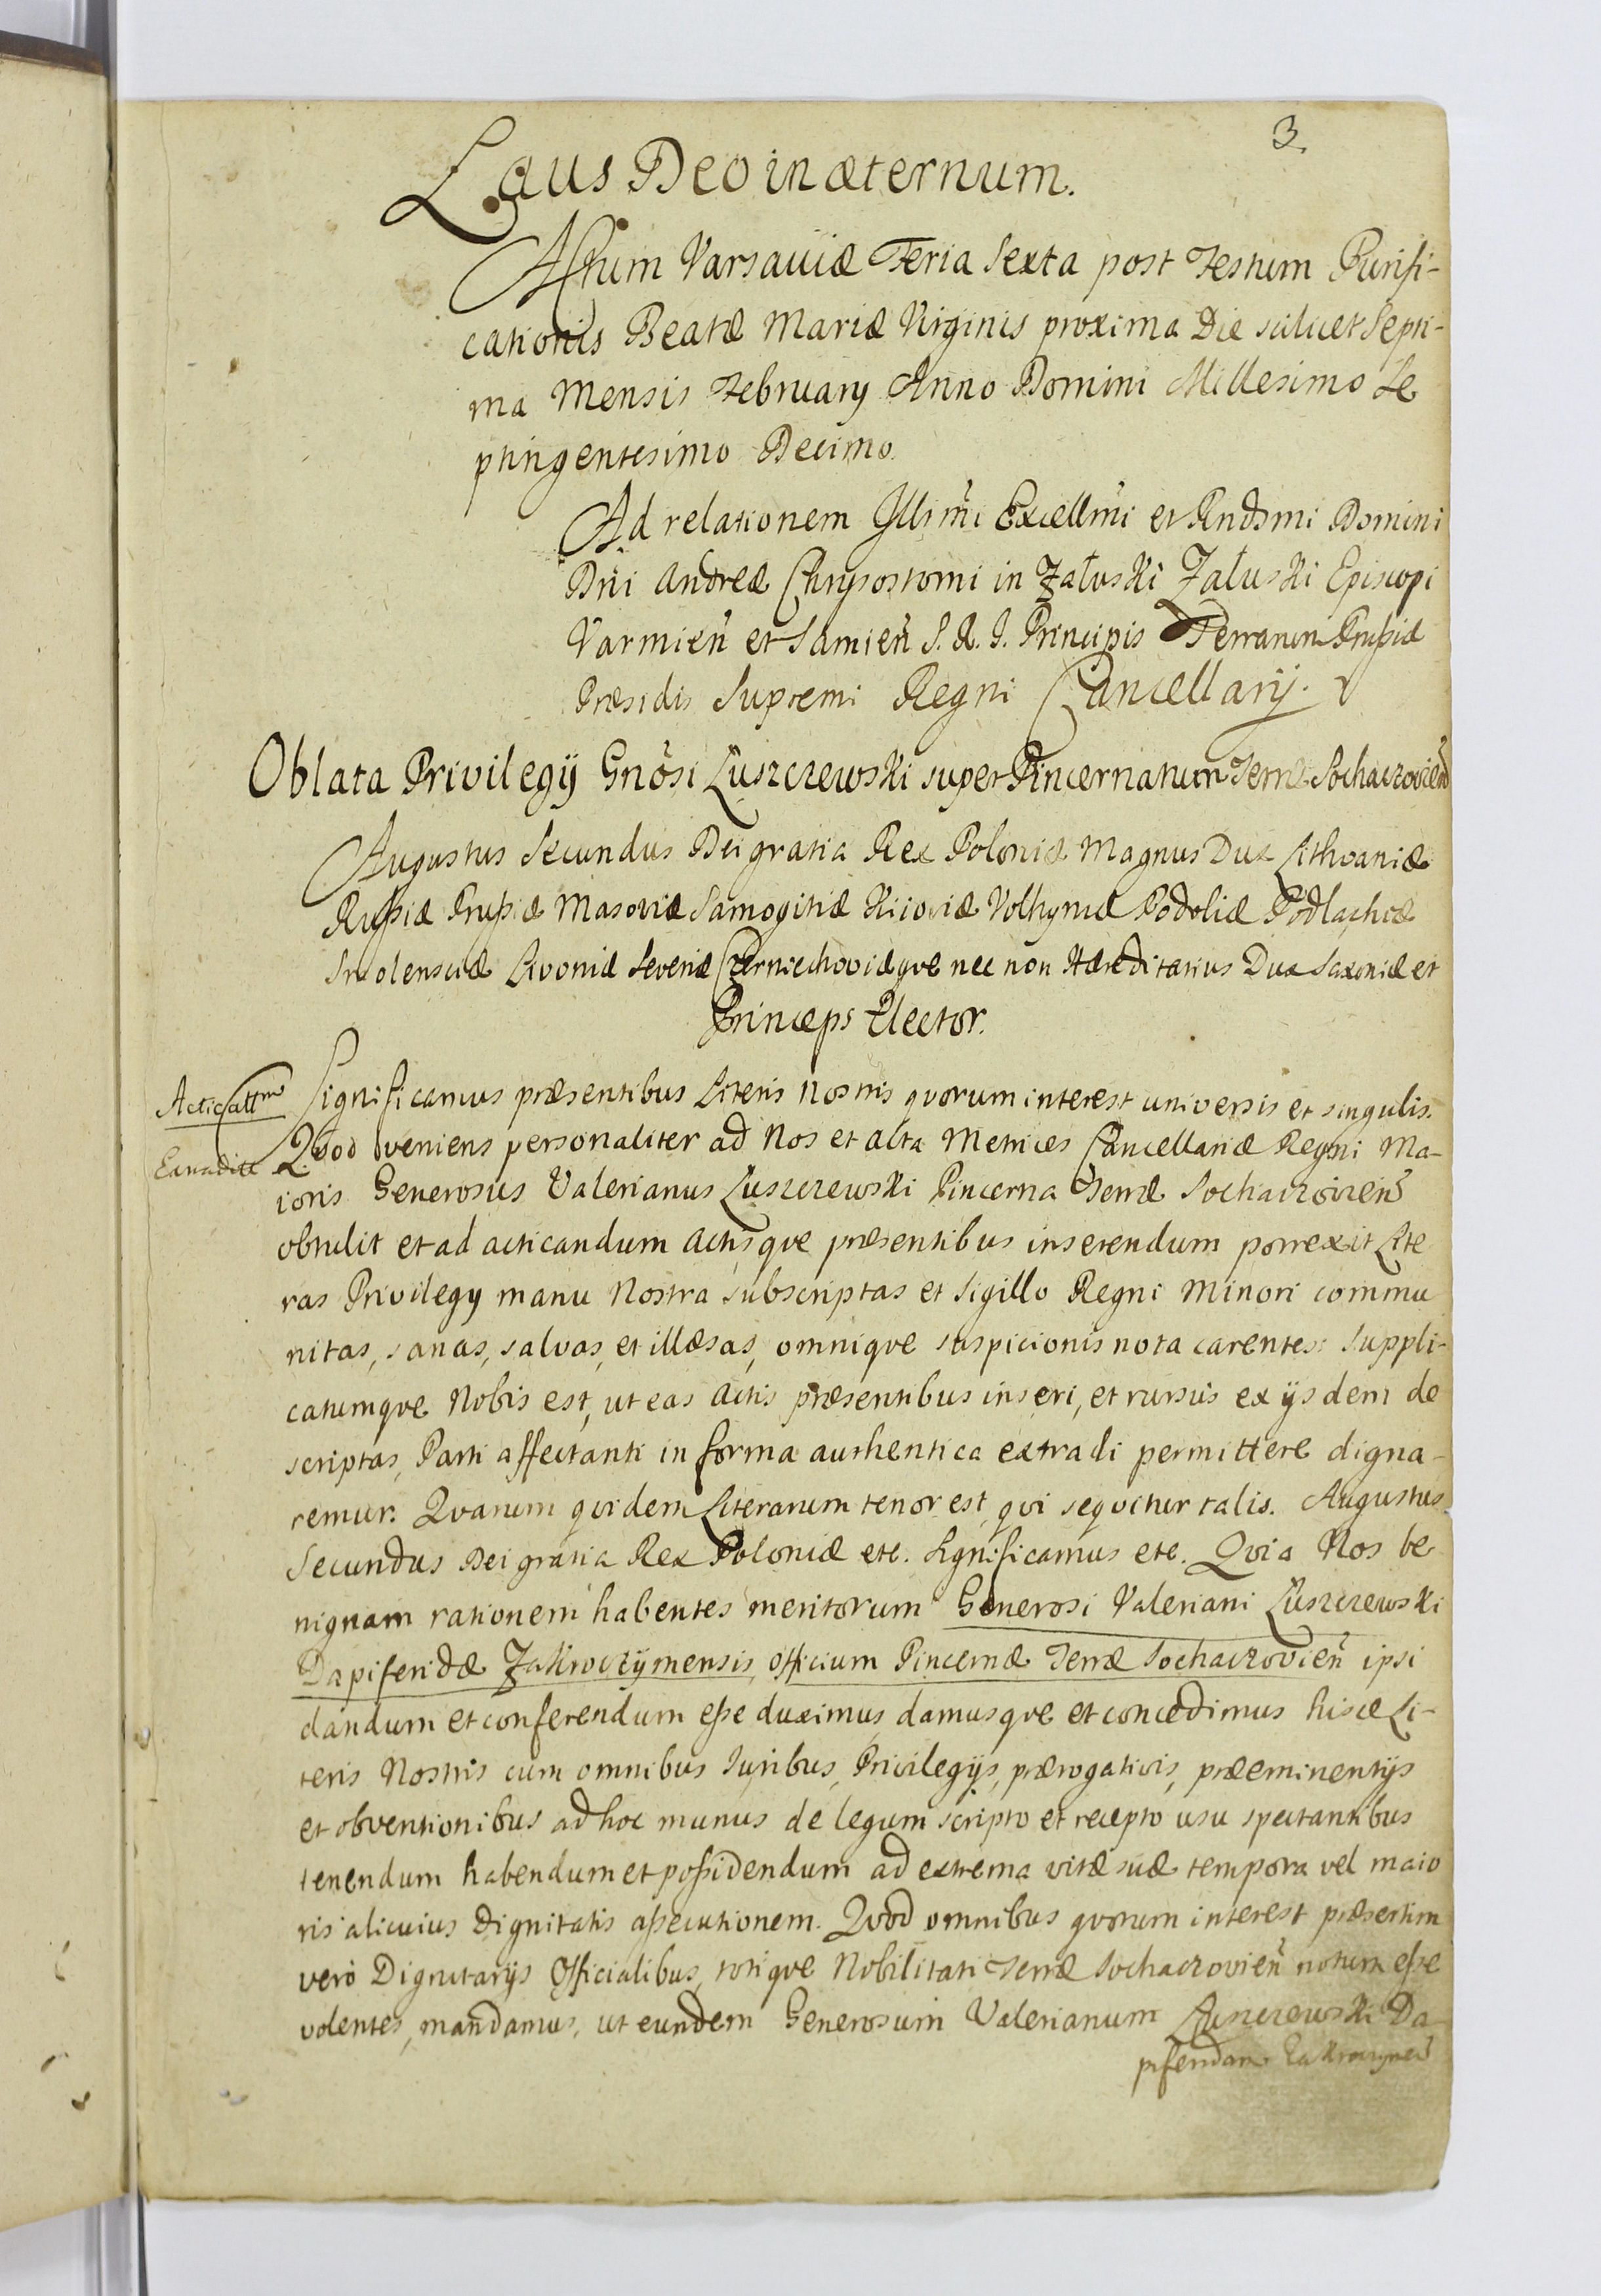 3.
Laus Deo in æternum.
Actum Varsaviæ Feria Sexta post Festum Purifi-
cationis Beatæ Mariæ Virginis proxima Die scilicet Septi-
ma Mensis February Anno Domini Millesimo Se
ptingentesimo Decimo.
Ad relationem Illsm̃i Excellm̃i et Rndsmi Domini
Dñi Andreæ Chrysostomi in Załuski Załuski Episcopi
Varmień et Samień S. R. I. Principis Terrarum Prußiæ
Præsidis Supremi Regni Cancellarij.
Oblata Privilegij Gnõsi Łuszczewski super Pincernatum Terræ Sochaczovień
Augustus Secundus Dei gratia Rex Poloniæ Magnus Dux Lithvaniæ
Rußiæ Prußiæ Masoviæ Samogitiæ Kiioviæ Volhyniæ Podoliæ Podlachiæ
Smolensciæ Livoniæ Severiæ Czerniechoviæqve nec non Hæreditarius Dux Saxoniæ et
Princeps Elector.
Significamus præsentibus Literis Nostris qvorum interest universis et singulis.
Qvod veniens personaliter ad Nos et Acta Metrices Cancellariæ Regni Ma-
ioris Generosus Valerianus Łuszczewski Pincerna Terræ Sochaczovień
obtulit et ad acticandum Actisqve præsentibus inserendum porrexit Lite
ras Privilegy manu Nostra subscriptas et Sigillo Regni Minori commu
nitas, sanas, salvas, et illæsas, omniqve suspicionis nota carentes: Suppli-
catumqve Nobis est, ut eas Actis præsentibus inseri, et rursus ex ijsdem de
scriptas, Parti affectanti in forma authentica extradi permittere digna-
remur. Qvarum qvidem Literarum tenor est, qvi seqvitur talis. Augustus
Secundus Dei gratia Rex Poloniæ etc. Significamus etc. Qvia Nos be
nignam rationem habentes meritorum Generosi Valeriani Łuszczewski
Dapiferidæ Zakroczÿmensis, Officium Pincernæ Terræ Sochaczovień ipsi
dandum et conferendum eße duximus damusqve et concedimus hisce Li-
teris Nostris cum omnibus Iuribus, Privilegijs, prærogativis, præeminentijs
et obventionibus ad hoc munus de legum scripto et recepto usu spectantibus
tenendum habendum et poßidendum ad extrema vitæ suæ tempora vel maio
ris alicuius Dignitatis aßecutionem. Qvod omnibus qvorum interest præsertim
vero Dignitarijs Officialibus, totiqve Nobilitati Terræ Sochaczovień notum eße
volentes, mandamus, ut eundem Generosum Valerianum Łuszczewski Da-
piferidam Zakroczymeñ